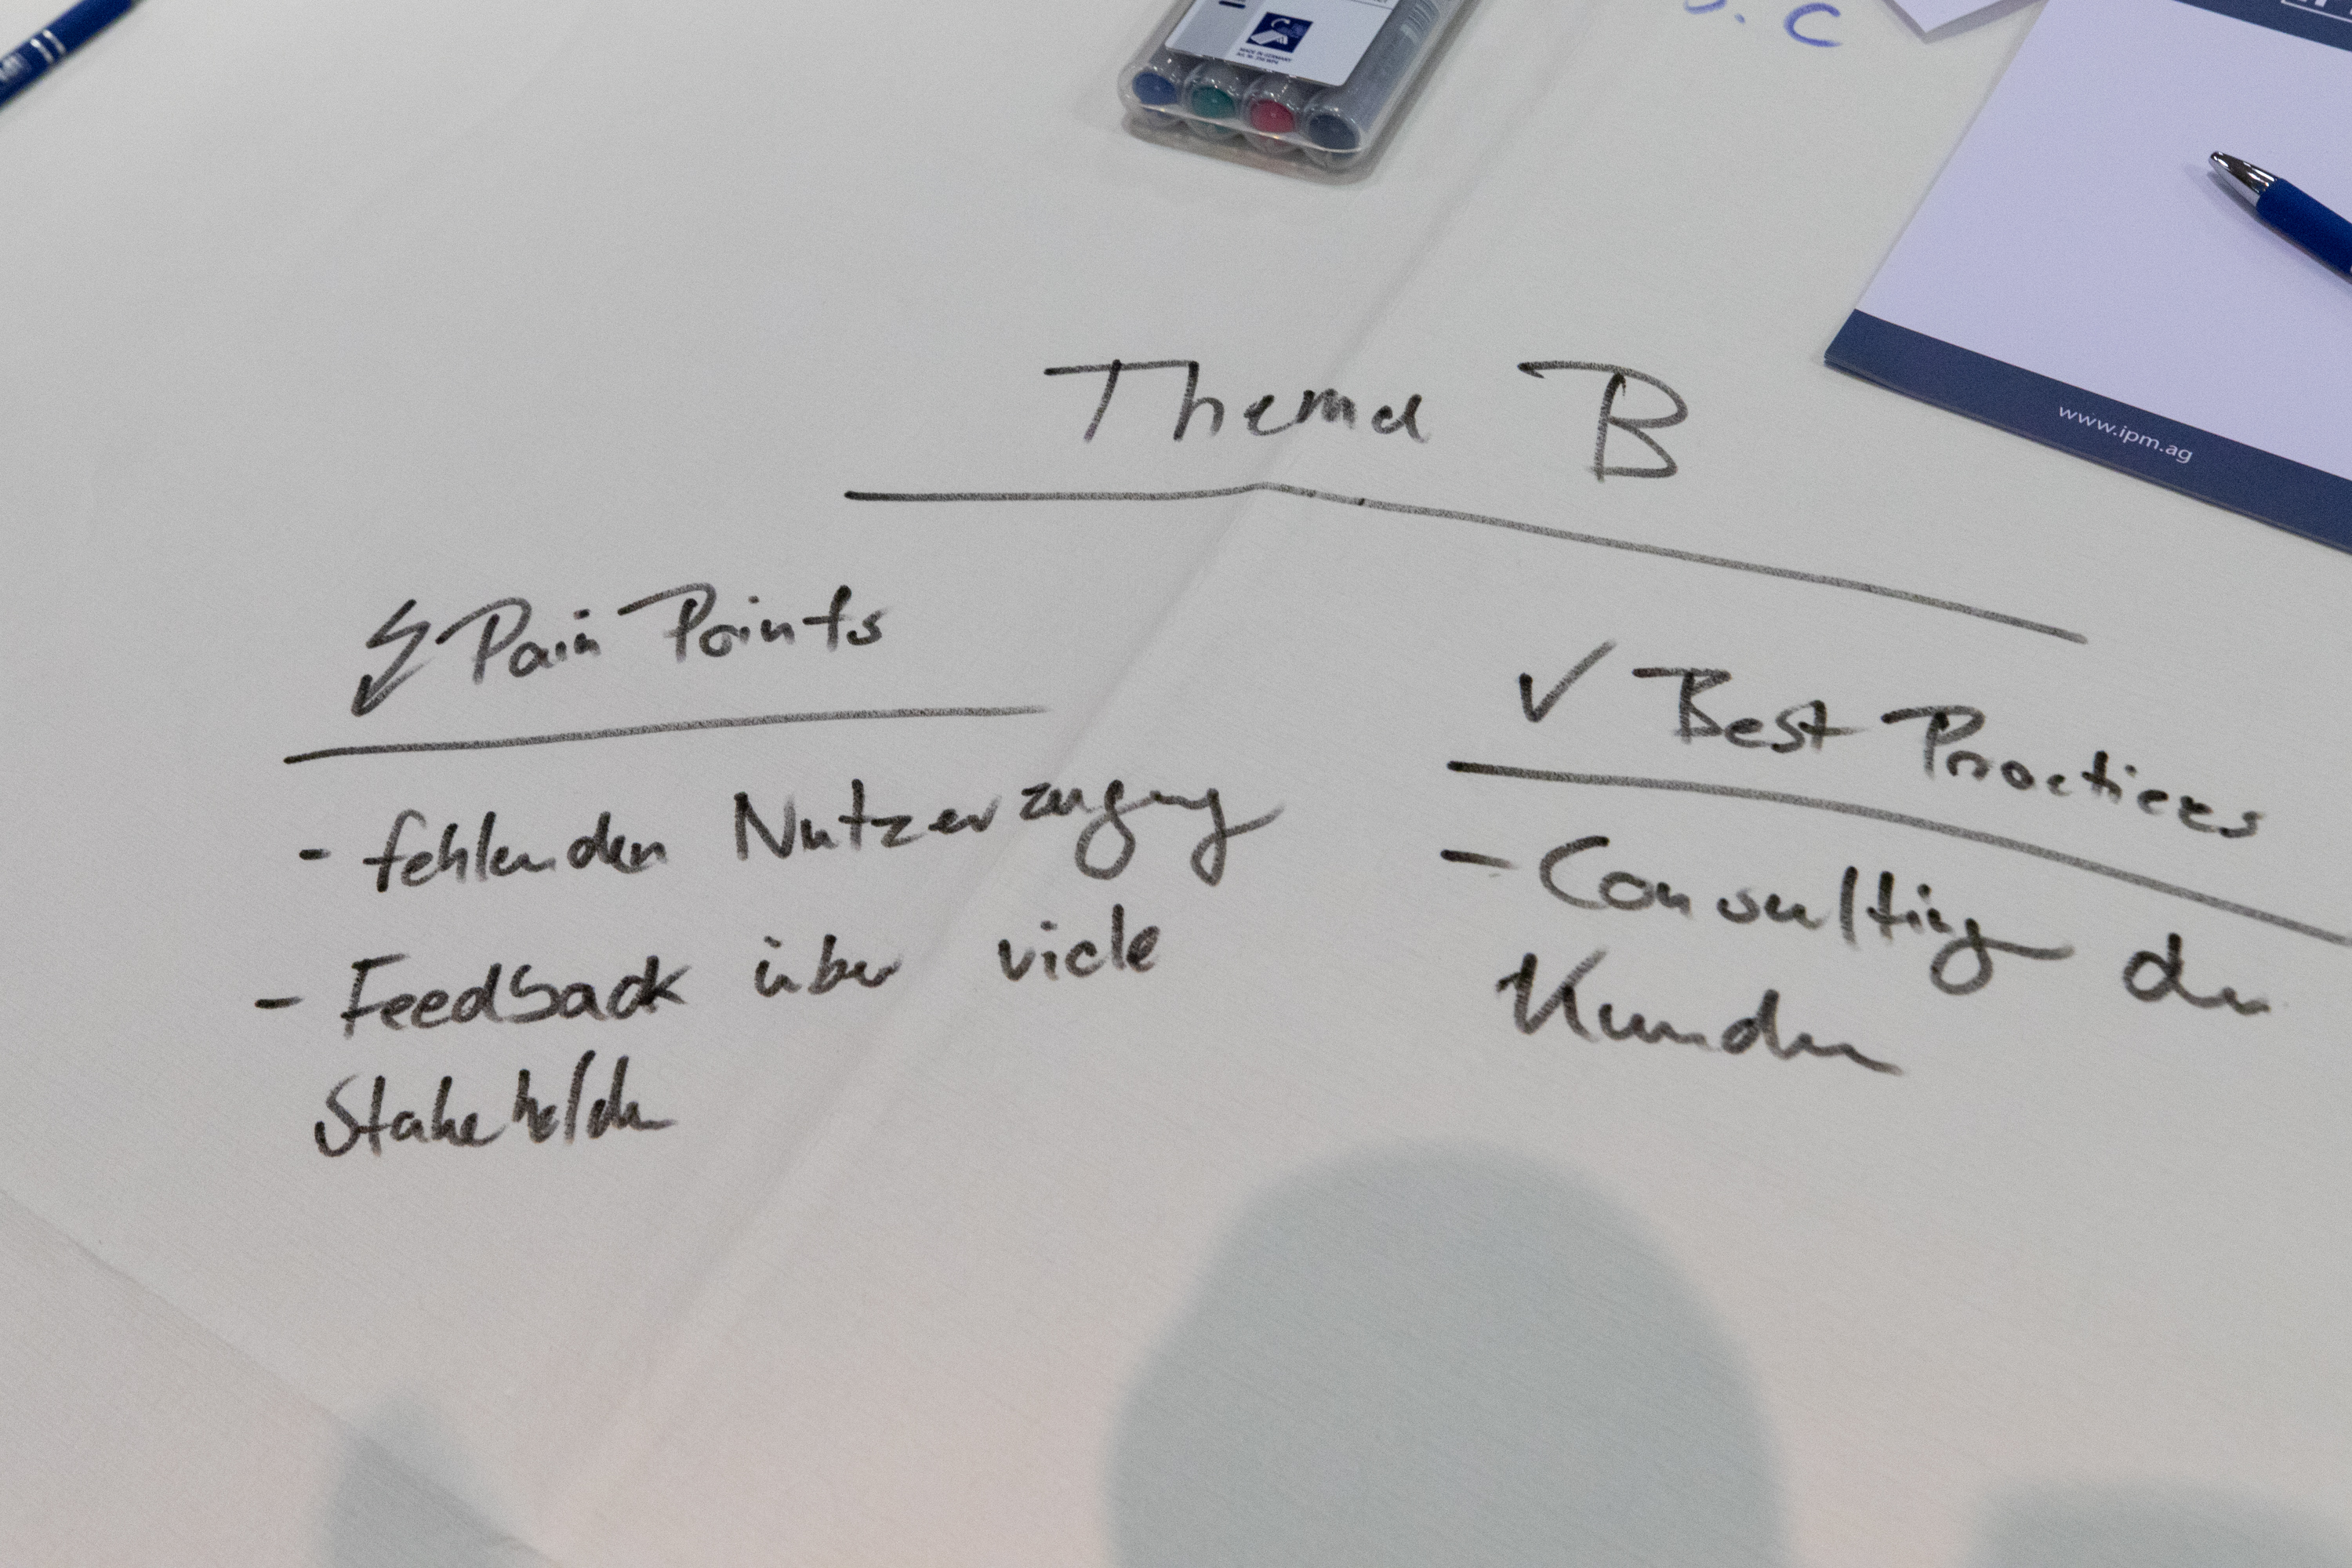 C
www.ipm.ag
Thema B
Pain Points
- fehlenden Nutzerzugang
- Feedback über viele
Stakeholder
✓ Best Practices
- Consulting der
Kunden